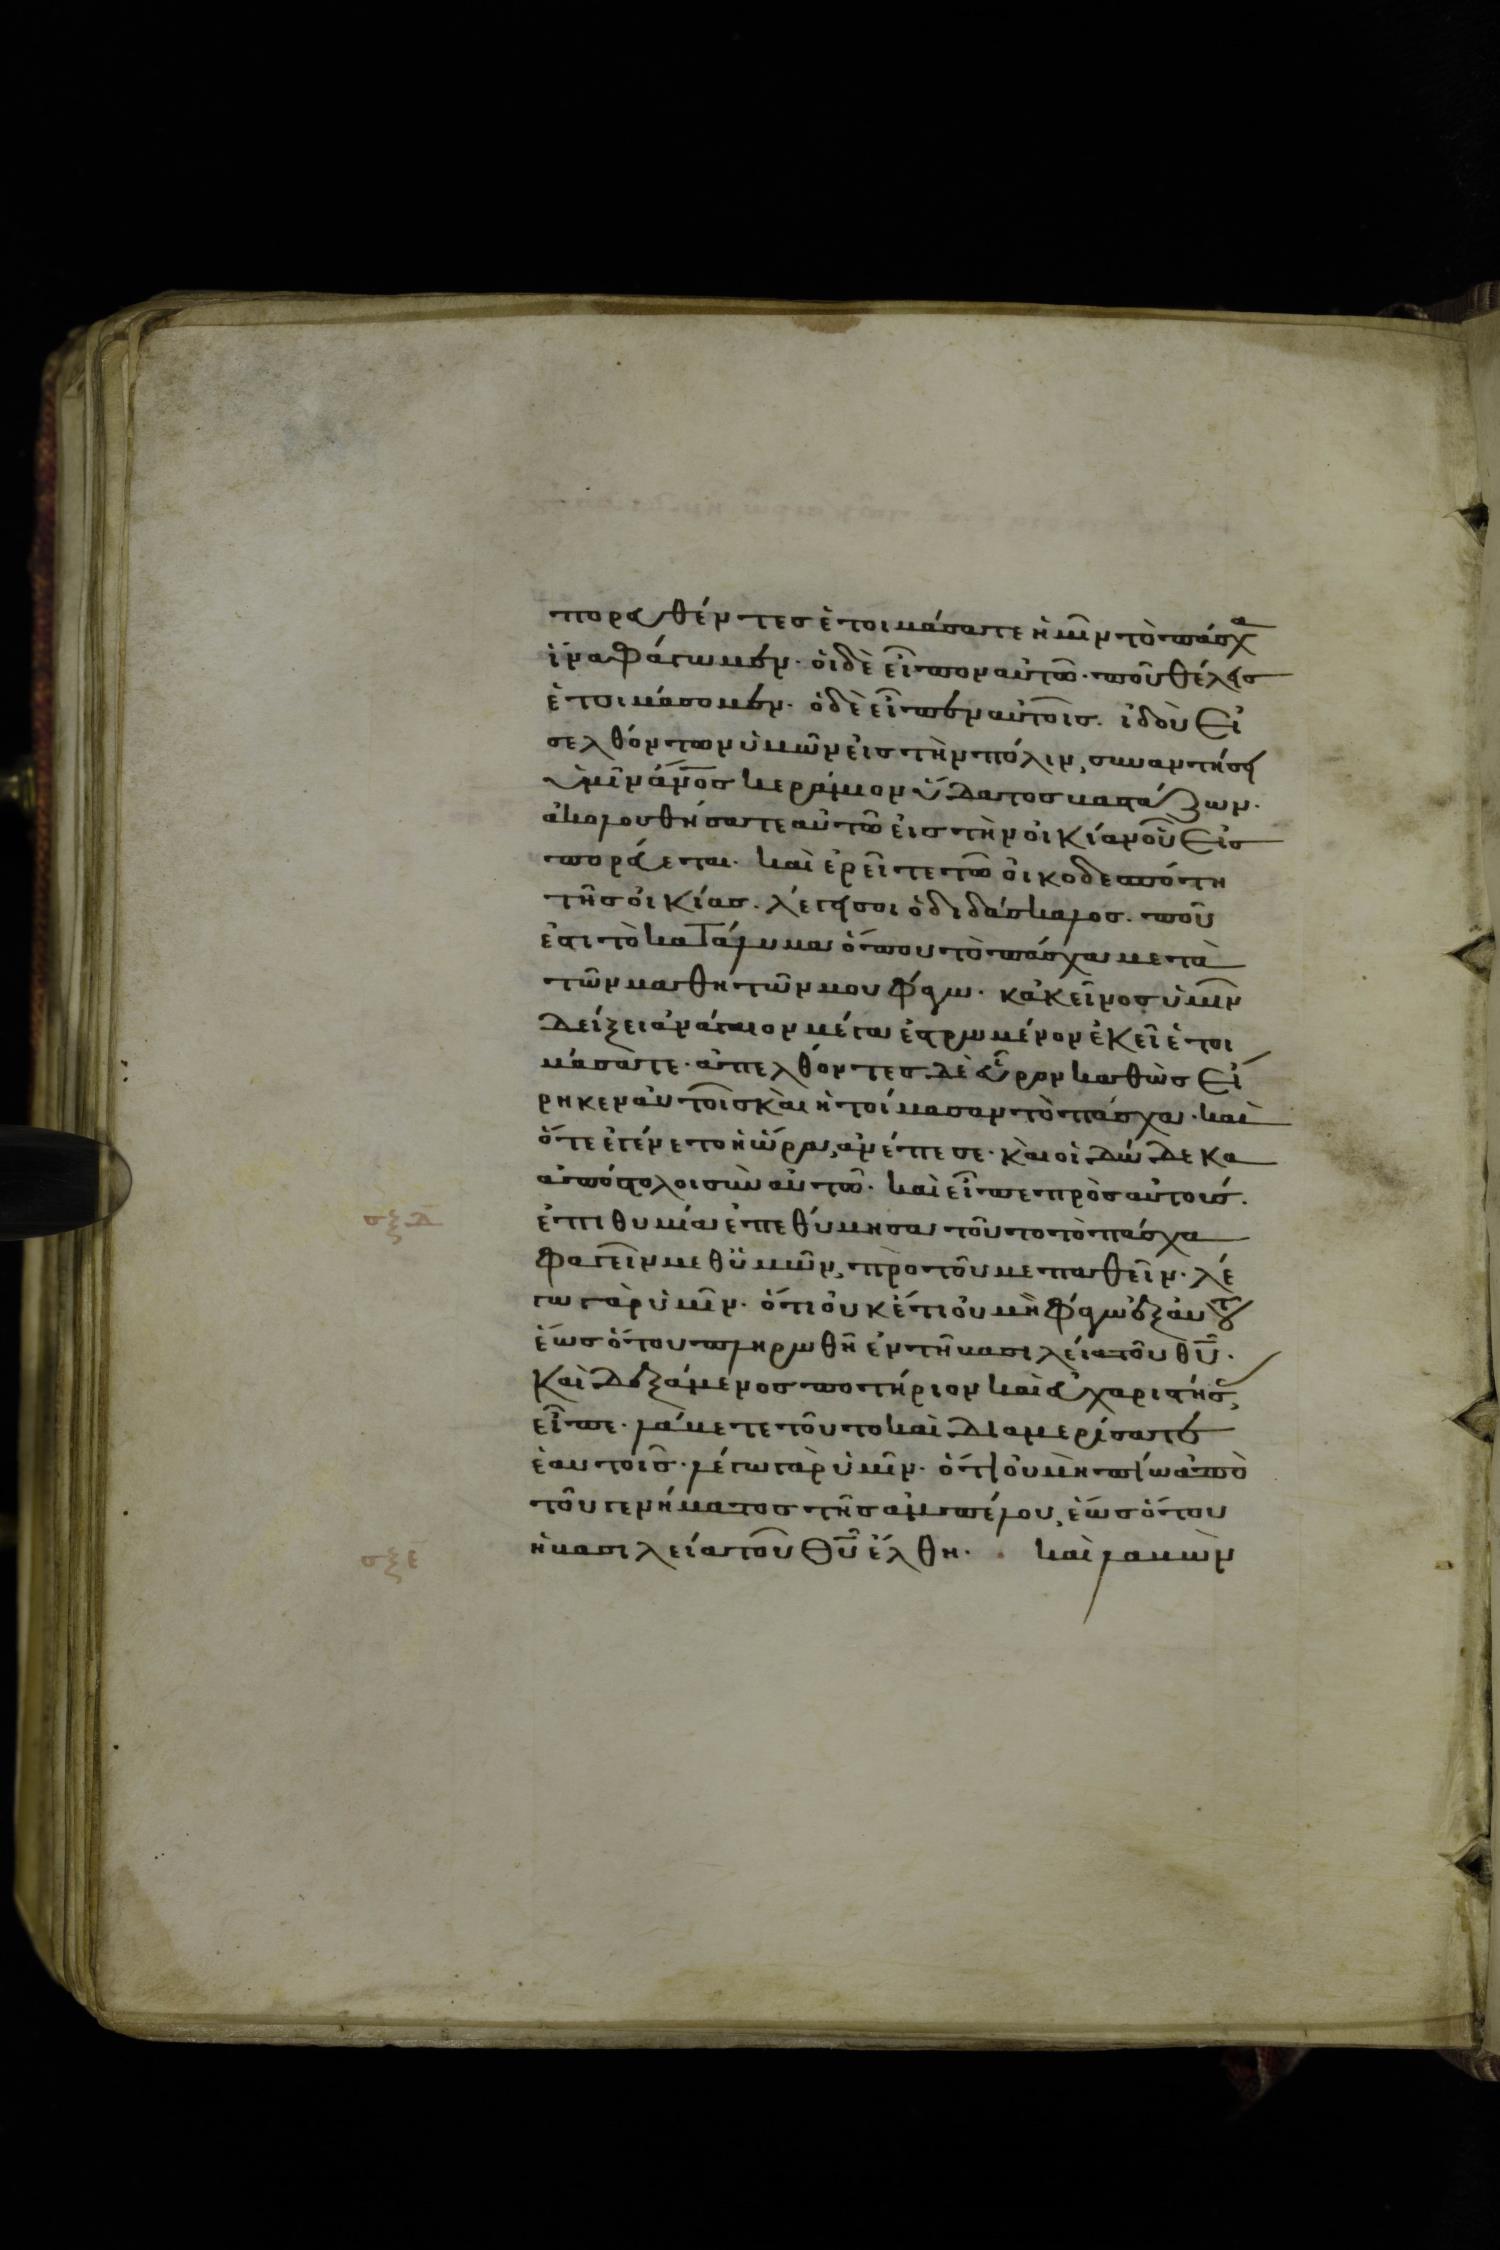 πορευθέντες ἑτοιμάσατε ἡμῖν τὸ πάσχα
ἵνα φάγωμεν· οἱ δὲ εἶπον αὐτῶ· ποῦ θέλεις
ἑτοιμάσομεν· ὁ δὲ εἶπεν αὐτοῖς· ἰδοὺ εἰ
σελθόντων ὑμῶν εἰς τὴν πόλιν, συναντήσει
ὑμῖν ἄνος κεράμιον ὕδατος βαστάζων·
ἀκολουθήσατε αὐτῶ εἰς τὴν οἰκίαν οὗ εἰσ
πορεύεται· καὶ ἐρεῖτε τῶ οἰκοδεσπότη
τῆς οἰκίας· λέγει σοι ὁ διδάσκαλος· ποῦ
ἐστι τὸ κατάλυμα ὅπου τὸ πάσχα μετὰ
τῶν μαθητῶν μου φάγω· κἀκεῖνος ὑμῖν
δείξει ἀνάγαιον μέγα ἐστρωμένον ἐκεῖ ἑτοι
μάσατε· ἀπελθόντες δὲ εὗρον καθὼς εἴ
ρηκεν αὐτοῖς καὶ ἡτοίμασαν τὸ πάσχα· καὶ
ὅτε ἐγένετο ἡ ὥρα, ἀνέπεσε· καὶ οἱ δώδεκα
ἀπόστολοι σὺν αὐτῶ· καὶ εἶπε πρὸς αὐτούς·
σξδ ἐπιθυμία ἐπεθύμησα τοῦτο τὸ πάσχα
φαγεῖν μεθ ὑμῶν, πρὸ τοῦ με παθεῖν· λέ
γω γὰρ ὑμῖν· ὅτι οὐκέτι οὐ μὴ φάγω ἐξ αὐτοῦ
ἕως ὅτου πληρωθῆ ἐν τῆ βασιλεία τοῦ θῦ·
καὶ δεξάμενος ποτήριον καὶ εὐχαριστήσας,
εἶπε· λάβετε τοῦτο καὶ διαμερίσατε
ἑαυτοῖς· λέγω γὰρ ὑμῖν· ὅτι οὐ μὴ πίω ἀπὸ
τοῦ γενήματος τῆς ἀμπέλου, ἕως ὅτου
σξε ἡ βασιλεία τοῦ θῦ ἔλθη· καὶ λαβὼν